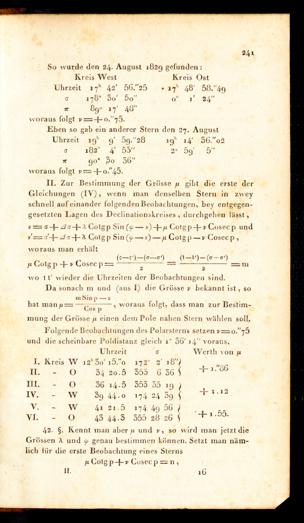 241
So wurde den 24. August 1829 gefunden:
Kreis West Kreis Ost
Uhrzeit 17ʰ 42′ 56.″25 17ʰ 48′ 58.″49
σ 178° 30′ 50″ 0° 1′ 24″
π 89° 17′ 48″
woraus folgt ν = + 0.″75.
Eben so gab ein anderer Stern den 27. August
Uhrzeit 19ʰ 9′ 59.″28 19ʰ 14′ 36.″02
σ 182° 4′ 55″ 2° 59′ 5″
π 90° 30 36″
woraus folgt ν = + 0.″45.
II. Zur Bestimmung der Grösse μ gibt die erste der
Gleichungen (IV), wenn man denselben Stern in zwey
schnell auf einander folgenden Beobachtungen, bey entgegen-
gesetzten Lagen des Declinationskreises, durchgehen lässt,
woraus man erhält
wo t t′ wieder die Uhrzeiten der Beobachtungen sind.
Da sonach m und (aus I) die Grösse ν bekannt ist, so
hat man μ = , woraus folgt, dass man zur Bestim-
mung der Grösse μ einen dem Pole nahen Stern wählen soll.
Folgende Beobachtungen des Polarsterns setzen ν = 0.″75
und die scheinbare Poldistanz gleich 1° 36′ 14″ voraus.
Uhrzeit σ Werth von μ
I. Kreis W 12ʰ 30′ 15.″0 172° 2′ 18″
II. - O 34 20.5 355 6 36 + 1.″86
III. - O 36 14.5 355 35 19
IV. - W 39 44.0 174 24 39 + 1.12
V. - W 41 21.5 174 49 56
VI. - O 43 44.5 355 28 26 + 1.55.
42. §. Kennt man aber μ und ν, so wird man jetzt die
Grössen λ und φ genau bestimmen können. Setzt man näm-
lich für die erste Beobachtung eines Sterns
μ Cotg p + ν Cosec p = n,
II. 16